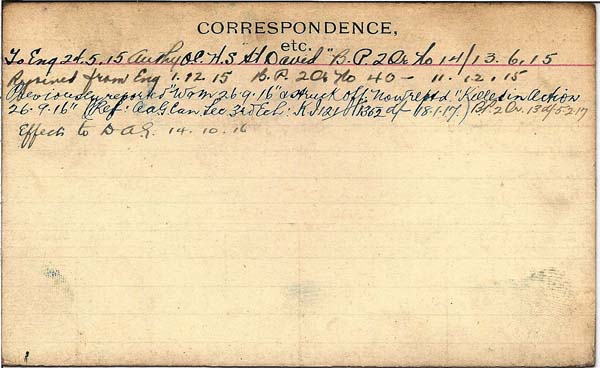 CORRESPONDENCE,
etc.
To Eng 24.5.15 Authy O.C. H.S "St David" B.P. 2 Or No 14/13.6.15
Rejoined from Eng 1.12.15 B.P. 2 Or No 40 - 11.12.15
Previously reported "W&M 26-9-16" & struck off: Now rept'd "Killed in Action
26-9-16" (Ref: AAG Can Sec 3rd Ech: 1362 d/- 18.1.17.) Pt. 2 Or. 13 d/5-2-17
Effects to DAG. 14.10.16